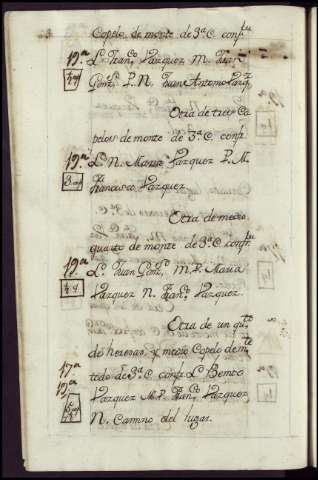 Copelo de monte de 3ª C. confª
19ª L. Franᶜᵒ Vazquez M. Juan
Gonz. P. N. Juan Antonio Vazqᶻ
Otra de tres Co
pelos de monte de 3ª C. conf.
19ª L. N. Maria Vazquez P. M.
3 cop Francisco Vazquez
Otra de medio
quarto de monte de 3ª C. confª
19ª L. Juan Gonz. M. P. Maria
Vazquez N. Franᶜᵒ Vazquez.
Otra de un qᵗᵒ
de heresas, y medio Copelo de
de 3ª C. conf. L. Benito
17ª
19ª Vazquez M. P. Franᶜᵒ Vazquez
N. Camino del lugar.